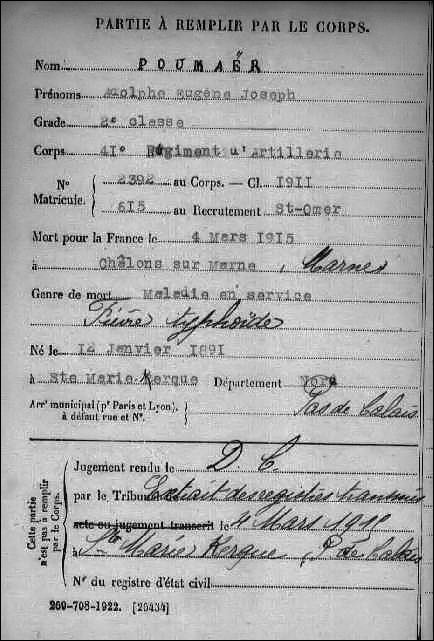 PARTIE À REMPLIR PAR LE CORPS.
Nom POUMAËR
Prénoms Adolphe Eugène Joseph
Grade 2e classe
Corps 41e Régiment d'Artillerie
No Matricule. 2392 au Corps. — Cl. 1911
615 au Recrutement St-Omer
Mort pour la France le 4 Mars 1915
à Châlons sur Marne, Marne
Genre de mort Maladie en service
Fièvre typhoïde
Né le 12 Janvier 1891
à Ste Marie-Kerque Département Nord
Arrt municipal (pr Paris et Lyon), à défaut rue et No. Pas de Calais
Cette partie n'est pas à remplir par le Corps.
Jugement rendu le D. C.
par le Tribunal Extrait des registres transmis
acte ou jugement transcrit le 4 Mars
à Ste Marie Kerque, P. de Calais
No du registre d'état civil
269-708-1922. [26434]